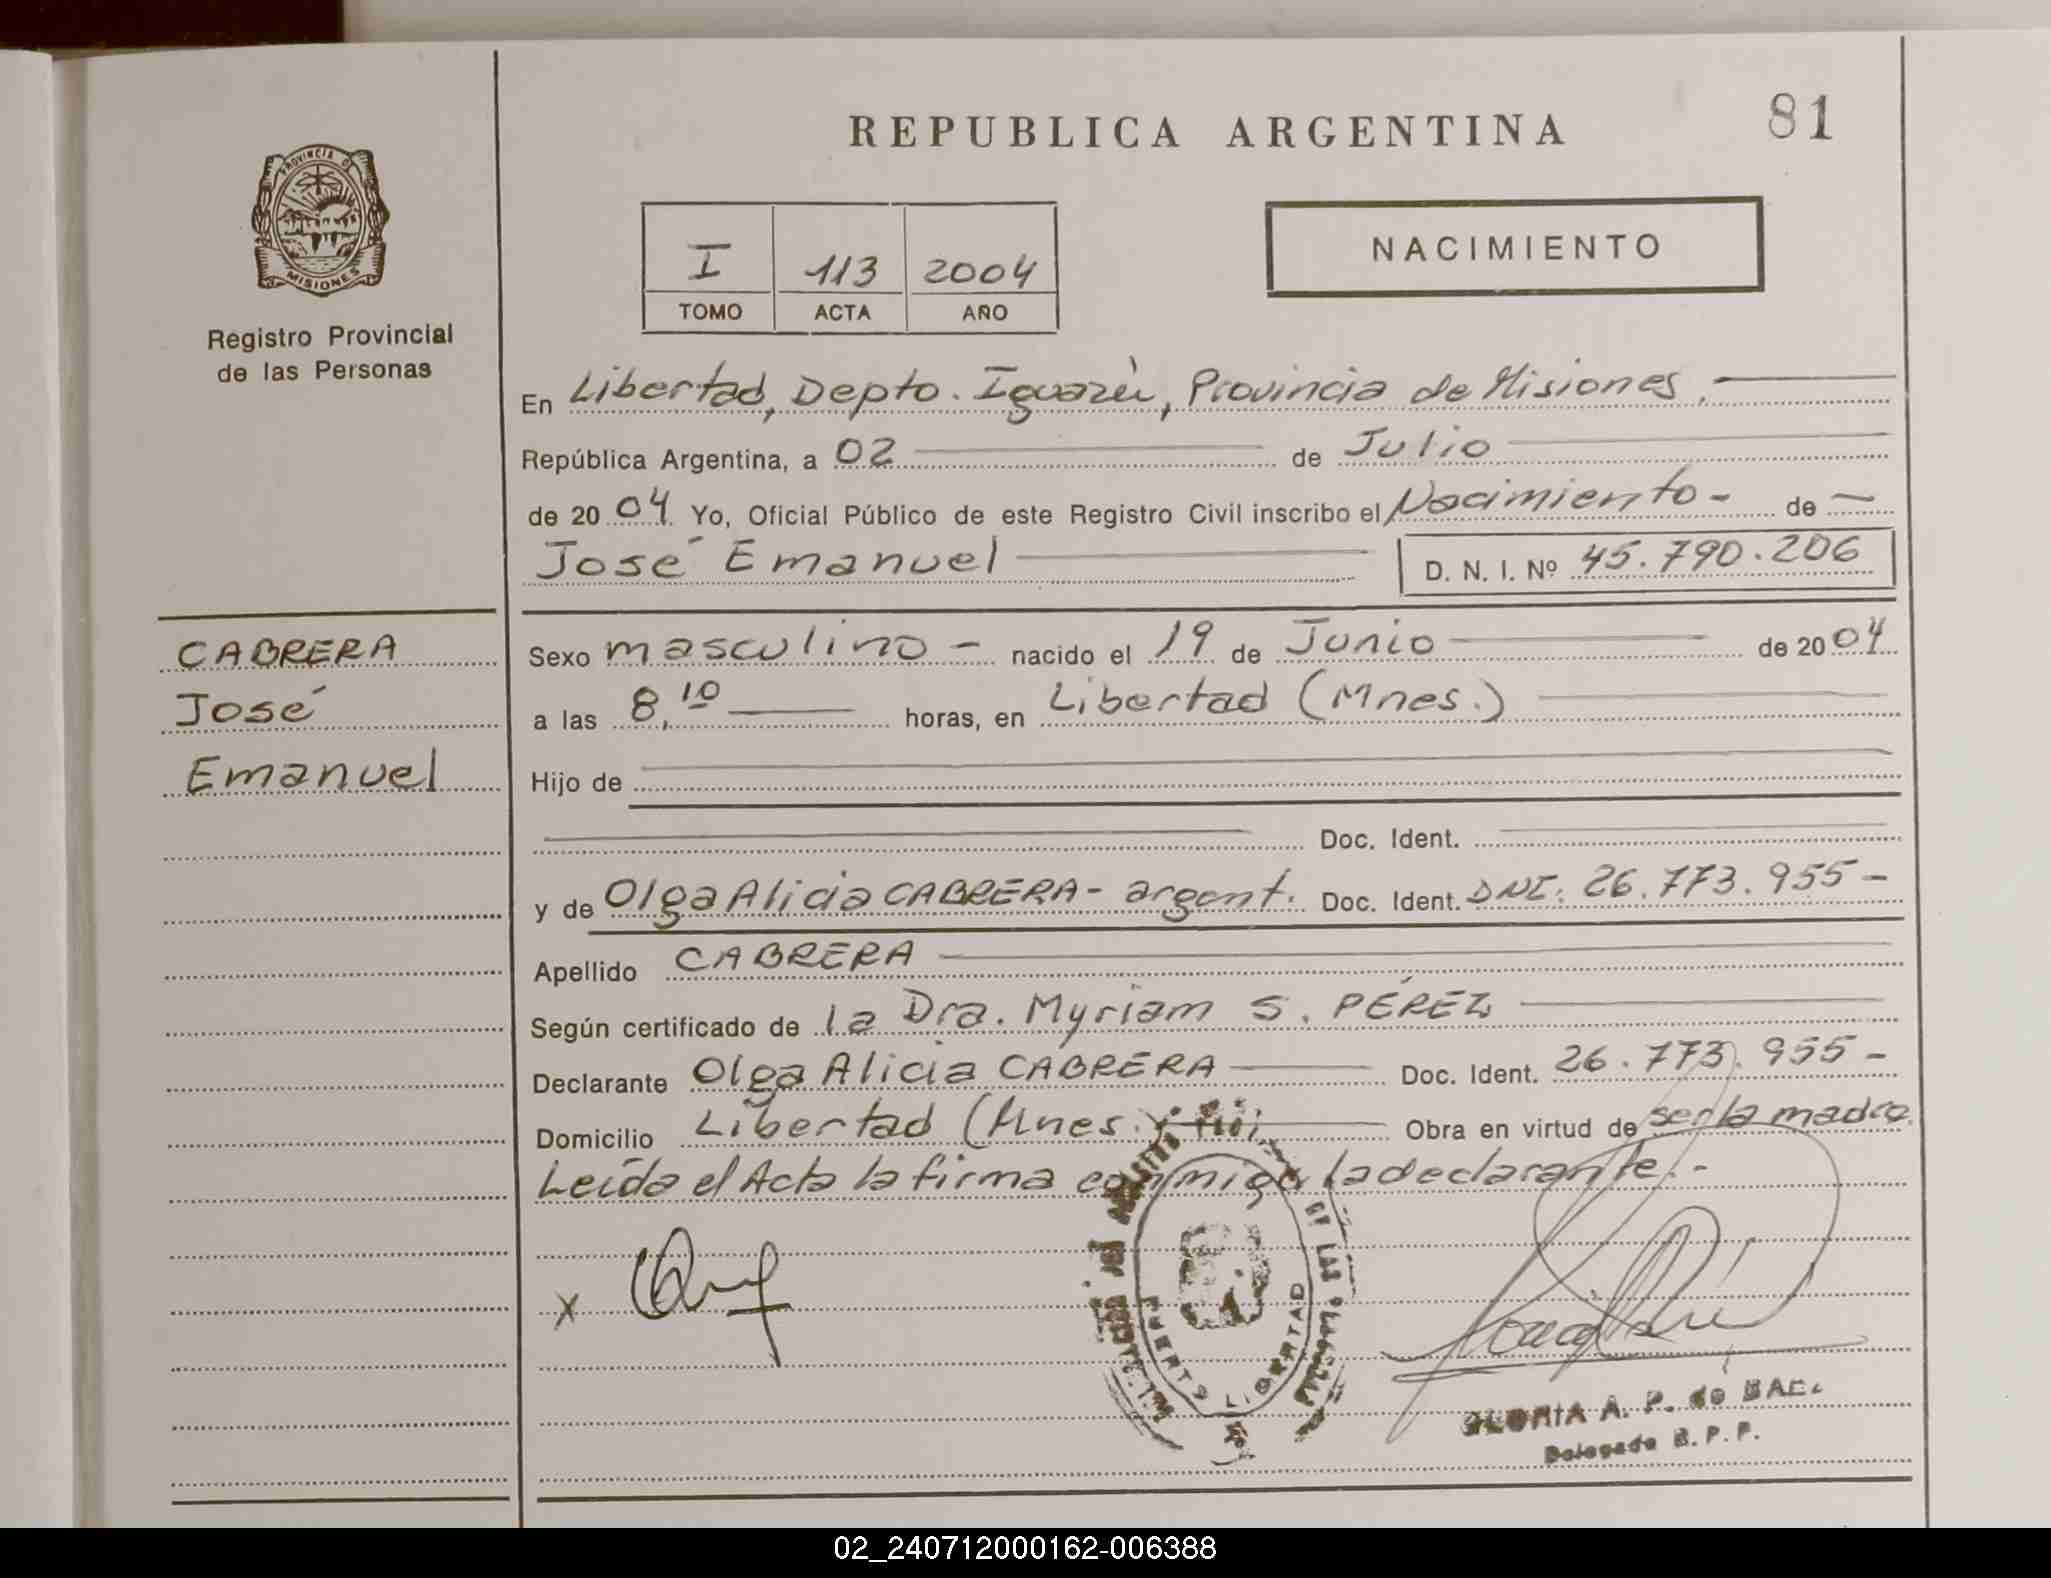 REPUBLICA ARGENTINA
81
PROVINCIA DE
MISIONES
Registro Provincial
de las Personas
I 113 2004
TOMO ACTA AÑO
NACIMIENTO
En Libertad, Depto. Iguazú, Provincia de Misiones,
República Argentina, a 02 de Julio
de 2004 Yo, Oficial Público de este Registro Civil inscribo el Nacimiento - de
José Emanuel D. N. I. Nº 45.790.206
CABRERA
José
Emanuel
Sexo masculino - nacido el 19 de Junio de 2004
a las 8,10 horas, en Libertad (Mnes.)
Hijo de
Doc. Ident.
y de Olga Alicia CABRERA - argent. Doc. Ident. DNI: 26.773.955 -
Apellido CABRERA
Según certificado de la Dra. Myriam S. PÉREZ
Declarante Olga Alicia CABRERA Doc. Ident. 26.773.955 -
Domicilio Libertad (Mnes.) Obra en virtud de ser la madre.
Leída el Acta la firma conmigo la declarante. -
X
DE LAS
PUERTO LIBERTAD
GLORIA A. P. de
Delegada R. P. P.
02_240712000162-006388